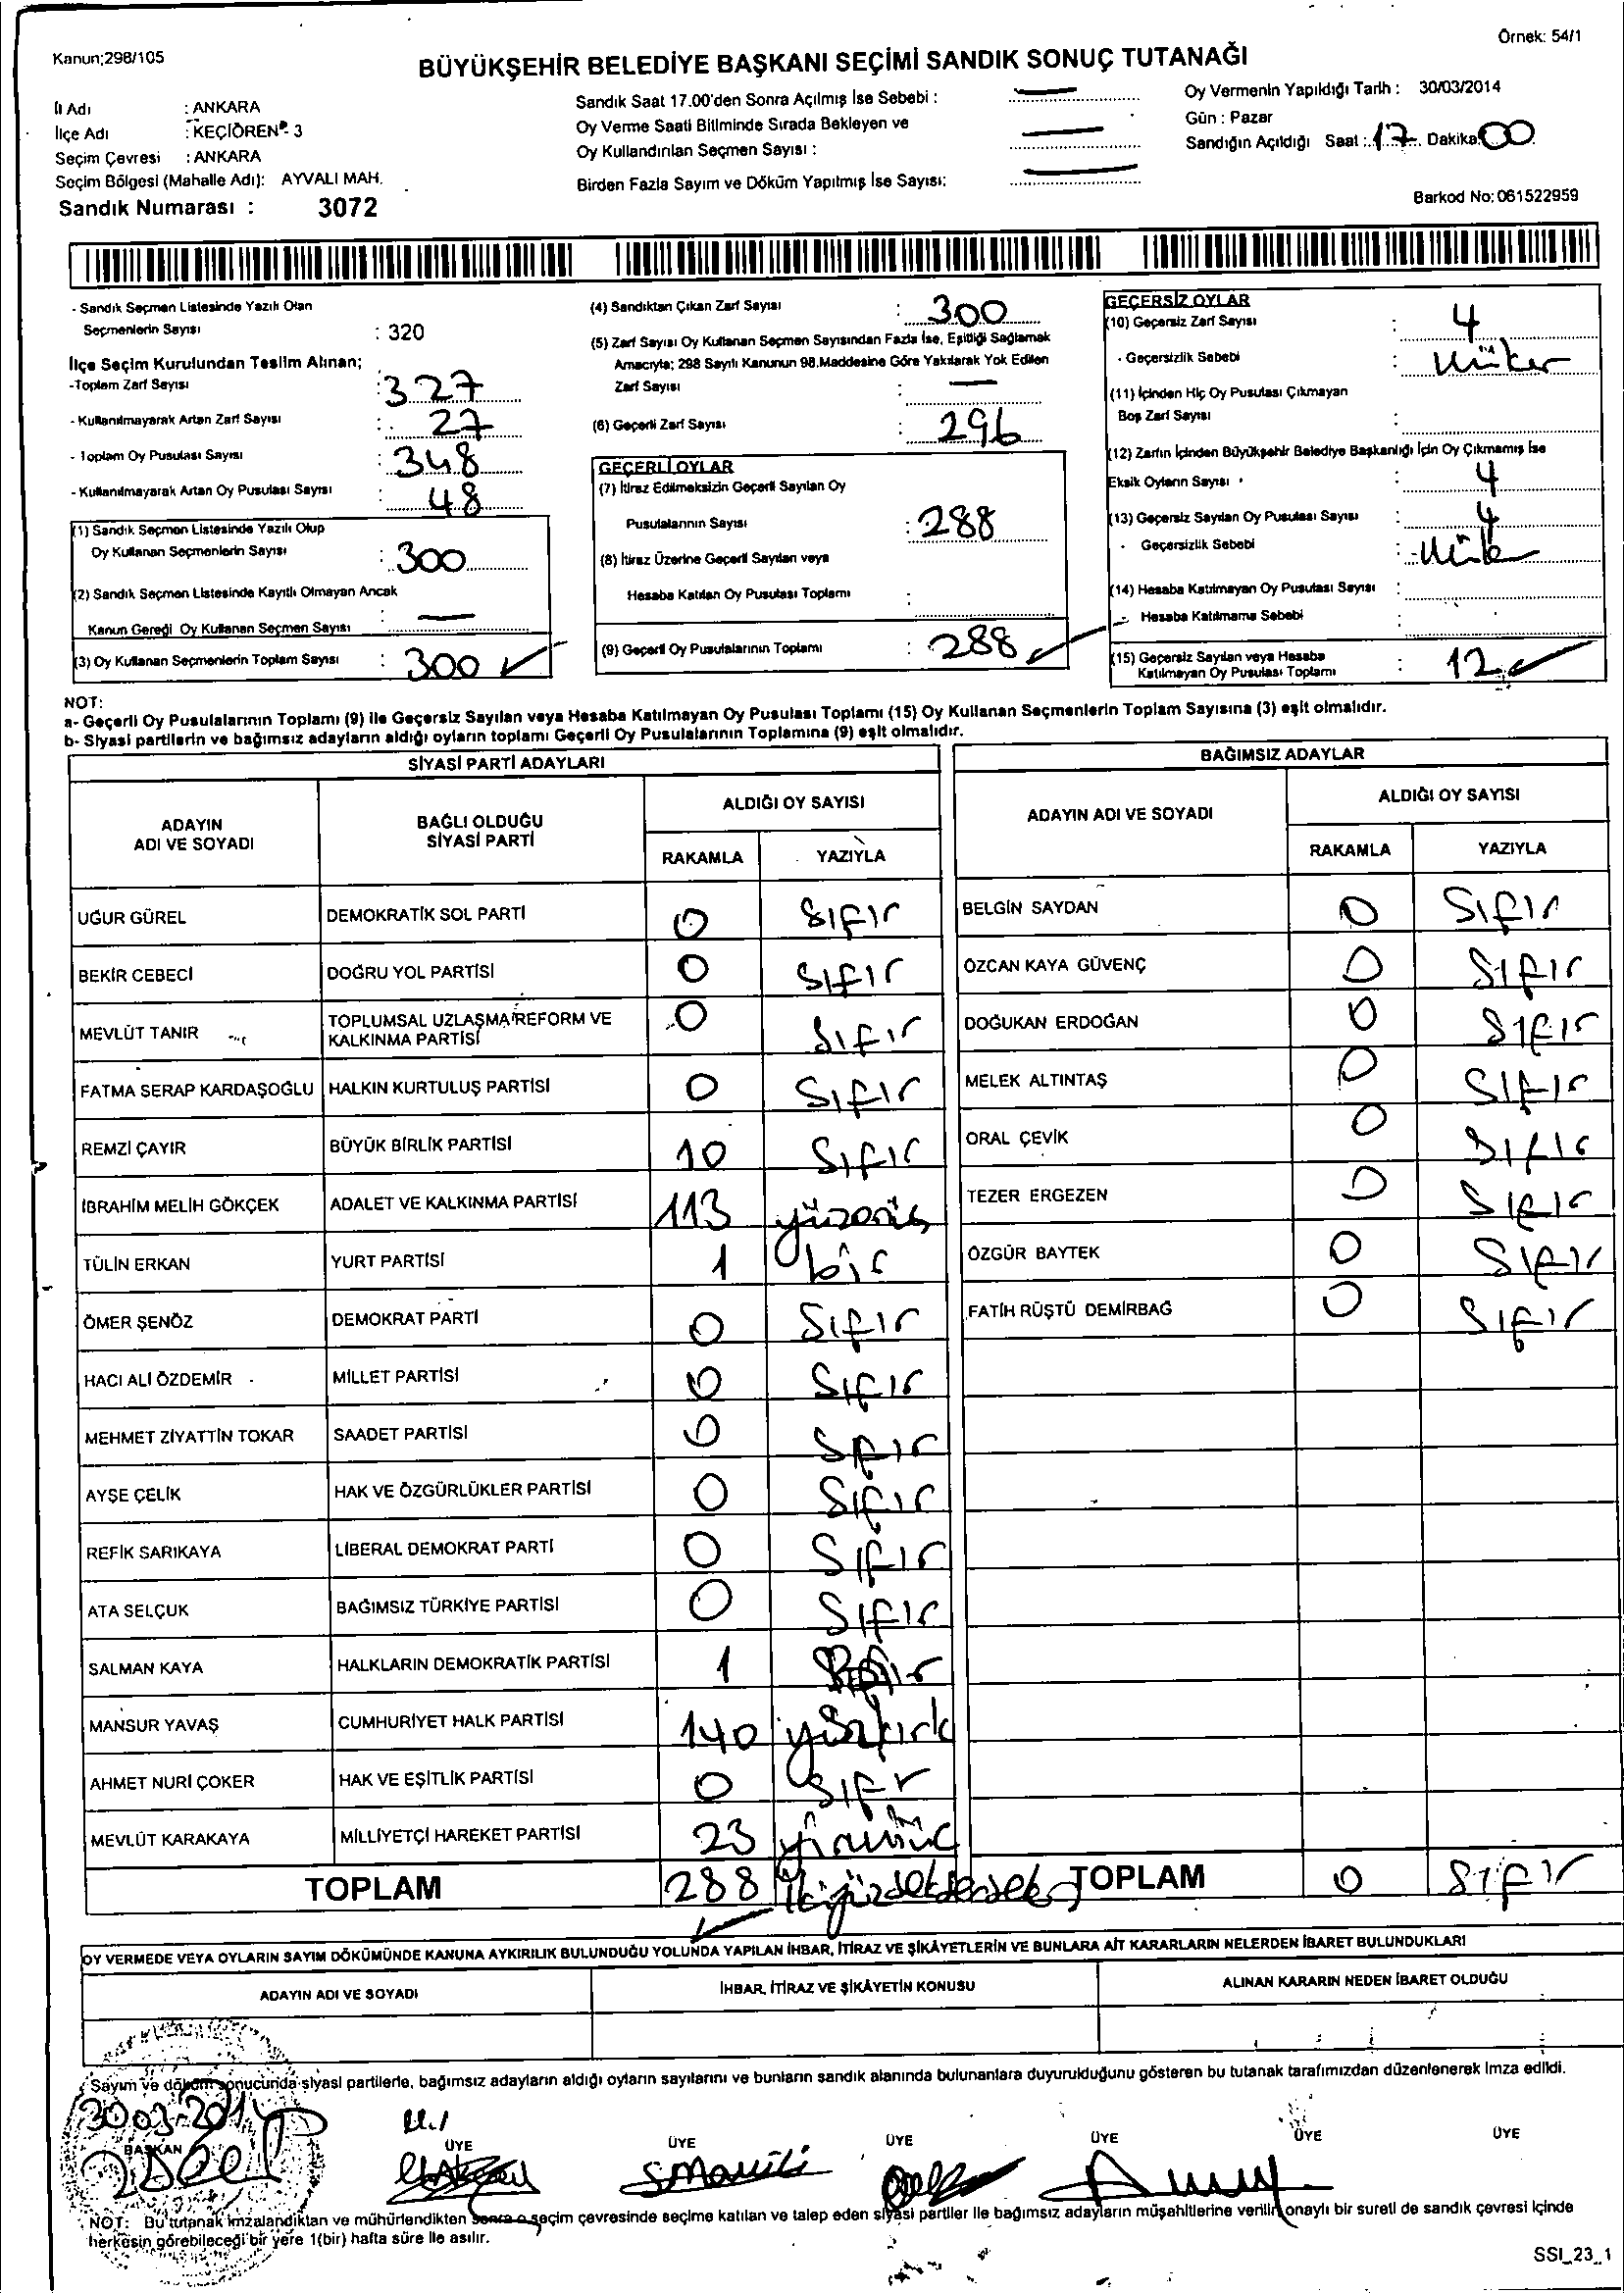 Kanun;298/105
Örnek: 54/1
BÜYÜKŞEHİR BELEDİYE BAŞKANI SEÇİMİ SANDIK SONUÇ TUTANAĞI
İl Adı : ANKARA
İlçe Adı : KEÇİÖREN - 3
Seçim Çevresi : ANKARA
Seçim Bölgesi (Mahalle Adı): AYVALI MAH.
Sandık Numarası : 3072
Sandık Saat 17.00'den Sonra Açılmış İse Sebebi :
Oy Verme Saati Bitiminde Sırada Bekleyen ve
Oy Kullandırılan Seçmen Sayısı :
Birden Fazla Sayım ve Döküm Yapılmış İse Sayısı:
Oy Vermenin Yapıldığı Tarih : 30/03/2014
Gün : Pazar
Sandığın Açıldığı Saat : 17 Dakika: 00
Barkod No: 061522959
- Sandık Seçmen Listesinde Yazılı Olan
Seçmenlerin Sayısı : 320
İlçe Seçim Kurulundan Teslim Alınan;
-Toplam Zarf Sayısı : 327
- Kullanılmayarak Artan Zarf Sayısı : 27
- Toplam Oy Pusulası Sayısı : 348
- Kullanılmayarak Artan Oy Pusulası Sayısı : 48
(1) Sandık Seçmen Listesinde Yazılı Olup
Oy Kullanan Seçmenlerin Sayısı : 300
(2) Sandık Seçmen Listesinde Kayıtlı Olmayan Ancak
Kanun Gereği Oy Kullanan Seçmen Sayısı :
(3) Oy Kullanan Seçmenlerin Toplam Sayısı : 300
(4) Sandıktan Çıkan Zarf Sayısı : 300
(5) Zarf Sayısı Oy Kullanan Seçmen Sayısından Fazla İse, Eşitliği Sağlamak
Amacıyla; 298 Sayılı Kanunun 98.Maddesine Göre Yakılarak Yok Edilen
Zarf Sayısı :
(6) Geçerli Zarf Sayısı : 296
GEÇERLİ OYLAR
(7) İtiraz Edilmeksizin Geçerli Sayılan Oy
Pusulalarının Sayısı : 288
(8) İtiraz Üzerine Geçerli Sayılan veya
Hesaba Katılan Oy Pusulası Toplamı :
(9) Geçerli Oy Pusulalarının Toplamı : 288
GEÇERSİZ OYLAR
(10) Geçersiz Zarf Sayısı : 4
- Geçersizlik Sebebi :
(11) İçinden Hiç Oy Pusulası Çıkmayan
Boş Zarf Sayısı :
(12) Zarfın İçinden Büyükşehir Belediye Başkanlığı İçin Oy Çıkmamış İse
Eksik Oyların Sayısı : 4
(13) Geçersiz Sayılan Oy Pusulası Sayısı : 4
- Geçersizlik Sebebi :
(14) Hesaba Katılmayan Oy Pusulası Sayısı :
- Hesaba Katılmama Sebebi :
(15) Geçersiz Sayılan veya Hesaba
Katılmayan Oy Pusulası Toplamı : 12
NOT:
a- Geçerli Oy Pusulalarının Toplamı (9) ile Geçersiz Sayılan veya Hesaba Katılmayan Oy Pusulası Toplamı (15) Oy Kullanan Seçmenlerin Toplam Sayısına (3) eşit olmalıdır.
b- Siyasi partilerin ve bağımsız adayların aldığı oyların toplamı Geçerli Oy Pusulalarının Toplamına (9) eşit olmalıdır.
SİYASİ PARTİ ADAYLARI
ADAYIN ADI VE SOYADI BAĞLI OLDUĞU SİYASİ PARTİ ALDIĞI OY SAYISI
RAKAMLA YAZIYLA
UĞUR GÜREL DEMOKRATİK SOL PARTİ 0 Sıfır
BEKİR CEBECİ DOĞRU YOL PARTİSİ 0 Sıfır
MEVLÜT TANIR TOPLUMSAL UZLAŞMA REFORM VE KALKINMA PARTİSİ 0 Sıfır
FATMA SERAP KARDAŞOĞLU HALKIN KURTULUŞ PARTİSİ 0 Sıfır
REMZİ ÇAYIR BÜYÜK BİRLİK PARTİSİ 10 Sıfır
İBRAHİM MELİH GÖKÇEK ADALET VE KALKINMA PARTİSİ 113
TÜLİN ERKAN YURT PARTİSİ 1 bir
ÖMER ŞENÖZ DEMOKRAT PARTİ 0 Sıfır
HACI ALİ ÖZDEMİR MİLLET PARTİSİ 0 Sıfır
MEHMET ZİYATTİN TOKAR SAADET PARTİSİ 0 Sıfır
AYŞE ÇELİK HAK VE ÖZGÜRLÜKLER PARTİSİ 0 Sıfır
REFİK SARIKAYA LİBERAL DEMOKRAT PARTİ 0 Sıfır
ATA SELÇUK BAĞIMSIZ TÜRKİYE PARTİSİ 0 Sıfır
SALMAN KAYA HALKLARIN DEMOKRATİK PARTİSİ 1
MANSUR YAVAŞ CUMHURİYET HALK PARTİSİ 140 yüzkırk
AHMET NURİ ÇOKER HAK VE EŞİTLİK PARTİSİ 0 Sıfır
MEVLÜT KARAKAYA MİLLİYETÇİ HAREKET PARTİSİ 23
TOPLAM 288
BAĞIMSIZ ADAYLAR
ADAYIN ADI VE SOYADI ALDIĞI OY SAYISI
RAKAMLA YAZIYLA
BELGİN SAYDAN 0 Sıfır
ÖZCAN KAYA GÜVENÇ 0 Sıfır
DOĞUKAN ERDOĞAN 0 Sıfır
MELEK ALTINTAŞ 0 Sıfır
ORAL ÇEVİK 0 Sıfır
TEZER ERGEZEN 0 Sıfır
ÖZGÜR BAYTEK 0 Sıfır
FATİH RÜŞTÜ DEMİRBAĞ 0 Sıfır
TOPLAM 0 Sıfır
OY VERMEDE VEYA OYLARIN SAYIM DÖKÜMÜNDE KANUNA AYKIRILIK BULUNDUĞU YOLUNDA YAPILAN İHBAR, İTİRAZ VE ŞİKÂYETLERİN VE BUNLARA AİT KARARLARIN NELERDEN İBARET BULUNDUKLARI
ADAYIN ADI VE SOYADI İHBAR, İTİRAZ VE ŞİKÂYETİN KONUSU ALINAN KARARIN NEDEN İBARET OLDUĞU
Sayım ve döküm sonucunda siyasi partilerle, bağımsız adayların aldığı oyların sayılarını ve bunların sandık alanında bulunanlara duyurulduğunu gösteren bu tutanak tarafımızdan düzenlenerek imza edildi.
30.03.2014
BAŞKAN ÜYE ÜYE ÜYE ÜYE ÜYE ÜYE
NOT: Bu tutanak imzalandıktan ve mühürlendikten sonra o seçim çevresinde seçime katılan ve talep eden siyasi partiler ile bağımsız adayların müşahitlerine verilir, onaylı bir sureti de sandık çevresi içinde
herkesin görebileceği bir yere 1(bir) hafta süre ile asılır.
SSI_23_1